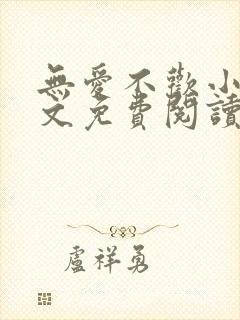 無愛不歡小
文免費閱讀
盧祥勇